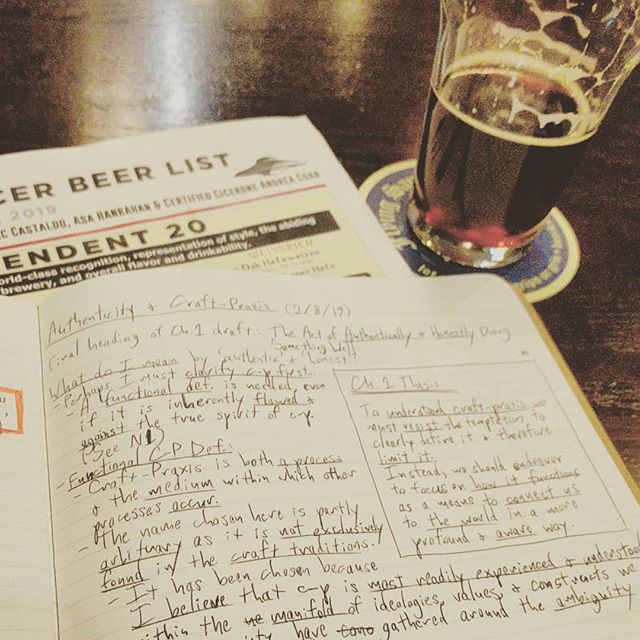 CER BEER LIST
2019
C CASTALDO, ASA HANRAHAN & CERTIFIED CICERONE ANDREA COAN
ENDENT 20
orld-class recognition, representation of style, the abiding
brewery, and overall flavor and drinkability.
Authenticity & Craft-Praxis (2/8/19)
Final heading of Ch. 1 draft: The Act of Authentically & Honestly Doing
Something Well
What do I mean by "authentic" & "honest"
- Perhaps I must clarify c-p first.
A functional def. is needed even
if it is inherently flawed &
against the true spirit of c-p.
(See N1)
Functional C-P Def.:
- Craft-Praxis is both a process
& the medium within which other
processes occur.
- The name chosen here is partly
arbitrary as it is not exclusively
found in the craft traditions.
- It has been chosen because
I believe that c-p is most readily experienced & understood
within the manifold of ideologies, values, & constructs we
have gathered around the ambiguity
Ch. 1 Thesis:
To understand craft-praxis we
must resist the temptation to
clearly define it & therefore
limit it.
Instead, we should endeavor
to focus on how it functions
as a means to connect us
to the world in a more
profound & aware way.